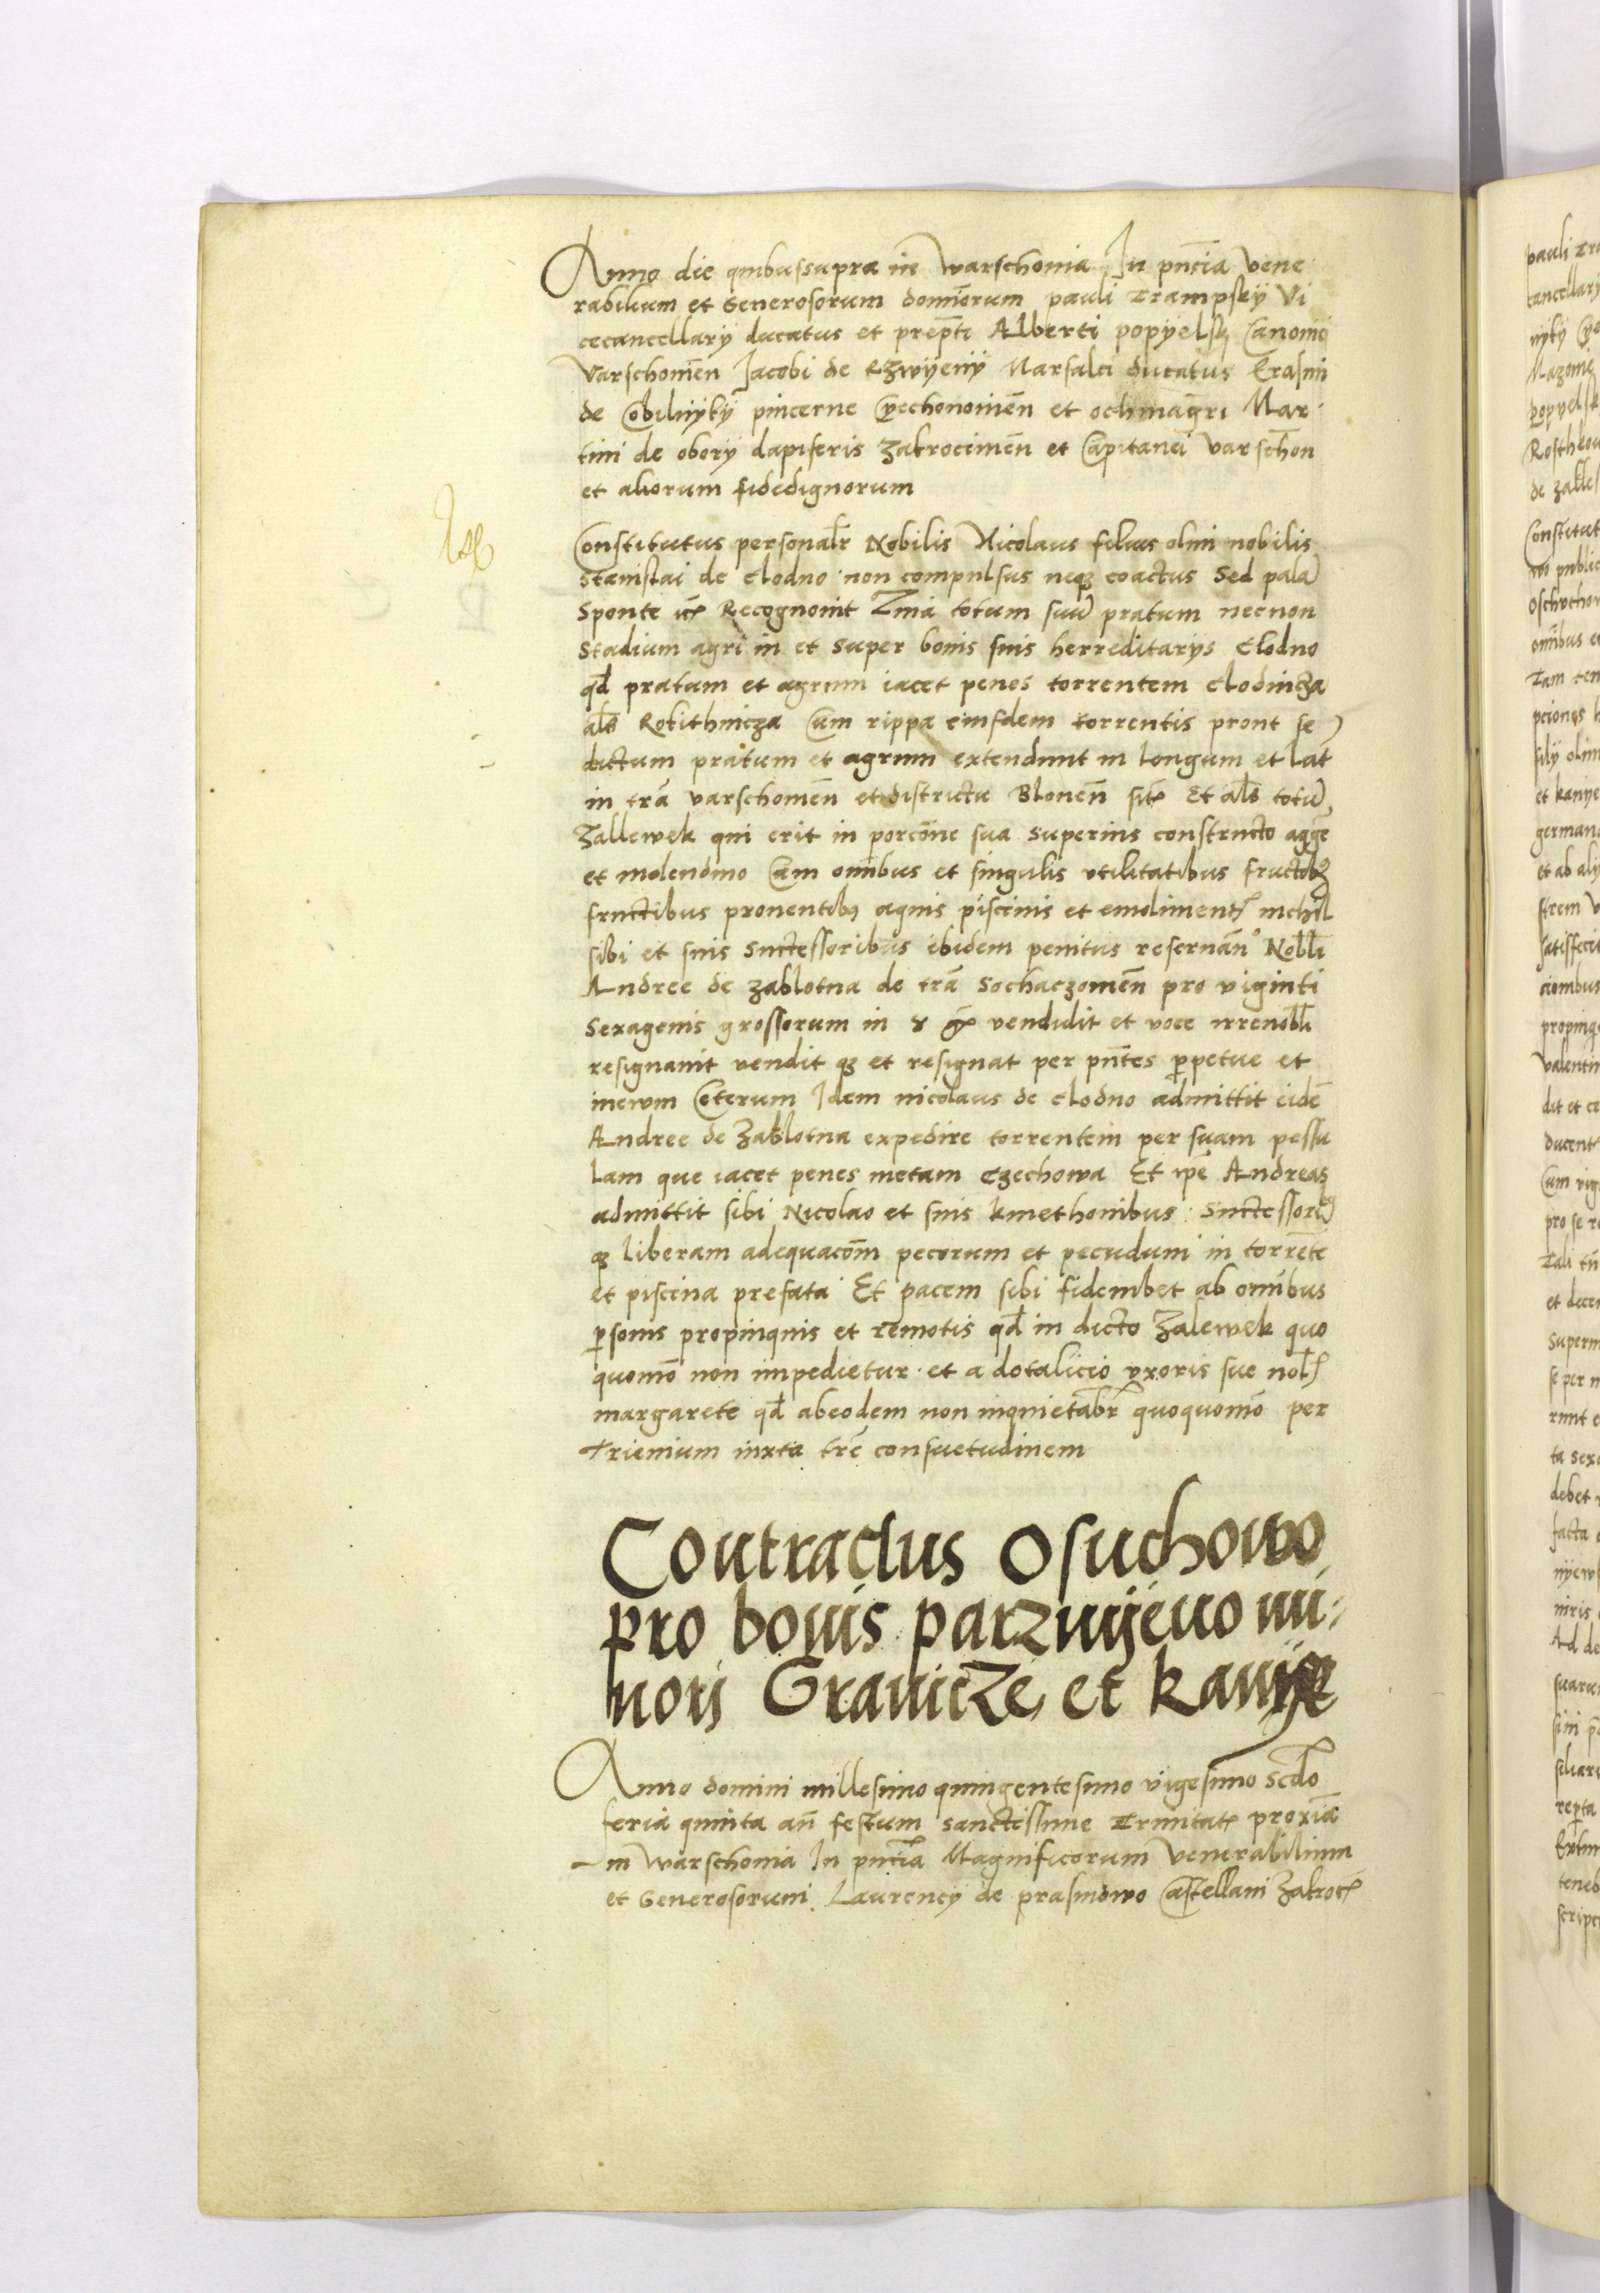 Anno die quibussupra in Warschouia In pñtia Vene
rabilium et Generosorum domiñorum pauli Trampskÿ Vi
cecancellarÿ ducatus et prep̃ti Alberti popÿelskj Canonici
Varschouieñ Jacobi de Rzwÿenÿ Marsalci ducatus Erasmi
de Cobilnÿkÿ pincerne Cyechonouieñ et ochmag̃ri Mar
tini de oborÿ dapiferis Zakrocimeñ et Capitanei Varscħon
et aliorum fidedignorum
Constitutus personalr̃ Nobilis Nicolaus filius olim nobilis
Stanislai de Clodno non compulsus neqz coactus Sed palã
Sponte etc Recognouit Quia totum suũ pratum necnon
Stadium agri in et super bonis suis herreditarÿs Clodno
qđ pratum et agrum iacet penes torrentem Clodnicza
als̃ Rokithnicza Cum rippa eiusdem torrentis prout se
dictum pratum et agrum extendunt in longum et lat
in tr̃a varschouieñ et districtu Bloneñ sitis Et als̃ totũ
Zallewek qui erit in porcõne sua superius constructo agg̃e
et molendino Cum omĩbus et singulis vtilitatibus fructibqz
fructibus prouentibus aquis piscinis et emolimentis nichil
sibi et suis Suctessoribus ibidem penitus reseruañ Nobli
Andree de Zablotna de tr̃a Sochaczouieñ pro viginti
Sexagenis grossorum in x gr̃ vendidit et voce irreuobl̃i
resignauit vendit qz et resignat per pñtes p̱petue et
ineuum Ceterum Idem nicolaus de Clodno admittit eidẽ
Andree de Zablotna expedire torrentem per suam pessu
lam que iacet penes metam Czechowa Et ip̃e Andreas
admittit sibi Nicolao et suis kmethonibus Suctessoribus
qz liberam adequacõm pecorum et pecudum in torreñte
et piscina prefata Et pacem sibi fideiubet ab omĩbus
p̱sonis propinquis et remotis qđ in dicto Zalewek quo
quomõ non impedietur et a dotalicio vxoris sue nobl
margarete qđ abeodem non inquietabr̃ quoquomõ per
Trienium iuxta tr̃e consuetudinem
Contractus Osuchowo
pro bonis parznÿewo mi=
norj Granicze et kanÿe
Anno domini millesimo quingentesimo vigesimo Scđo
feria quinta añ festum sanctissime Trinitatis proxiã
in Warschouia In pñtia Magnificorum Venerabilium
et Generosorum Laurencÿ de prasmowo Castellani Zakroc